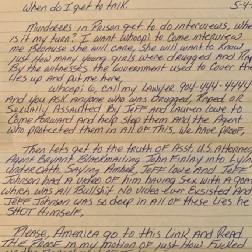 when do I get to talk. 5-4-
Murderers in Prison get to do interviews, wh
is it my turn? I want Whoopi to come interview
me Because she will care, she will want to know
Just How many young Girls were drugged and Rap
By the witnesses the Government used to cover the
lies up and Put me here,
Whoopi G, call my Lawyer 904-444-4444
and you ask anyone who was Drugged, Raped or
Sexually Assaulted By Jeff and Lauren Lowe to
come Forward and help stop them and the Agent
who protected them in all of This, we have Proof,
Then lets get to the truth of Asst. U.S. Attorney
Agent Bryant Blackmailing John Finlay into Lyin
under oath, saying Amber, Jeff Lowe and Jeff
Johnson Had a Video of him Having sex with a
when was all Bullshit No video ever Existed And
Jeff Johnson was so deep in all of these lies he
SHOT Himself,
Please, America go to this Link and Read
The Proof in my motion of just How Fucked